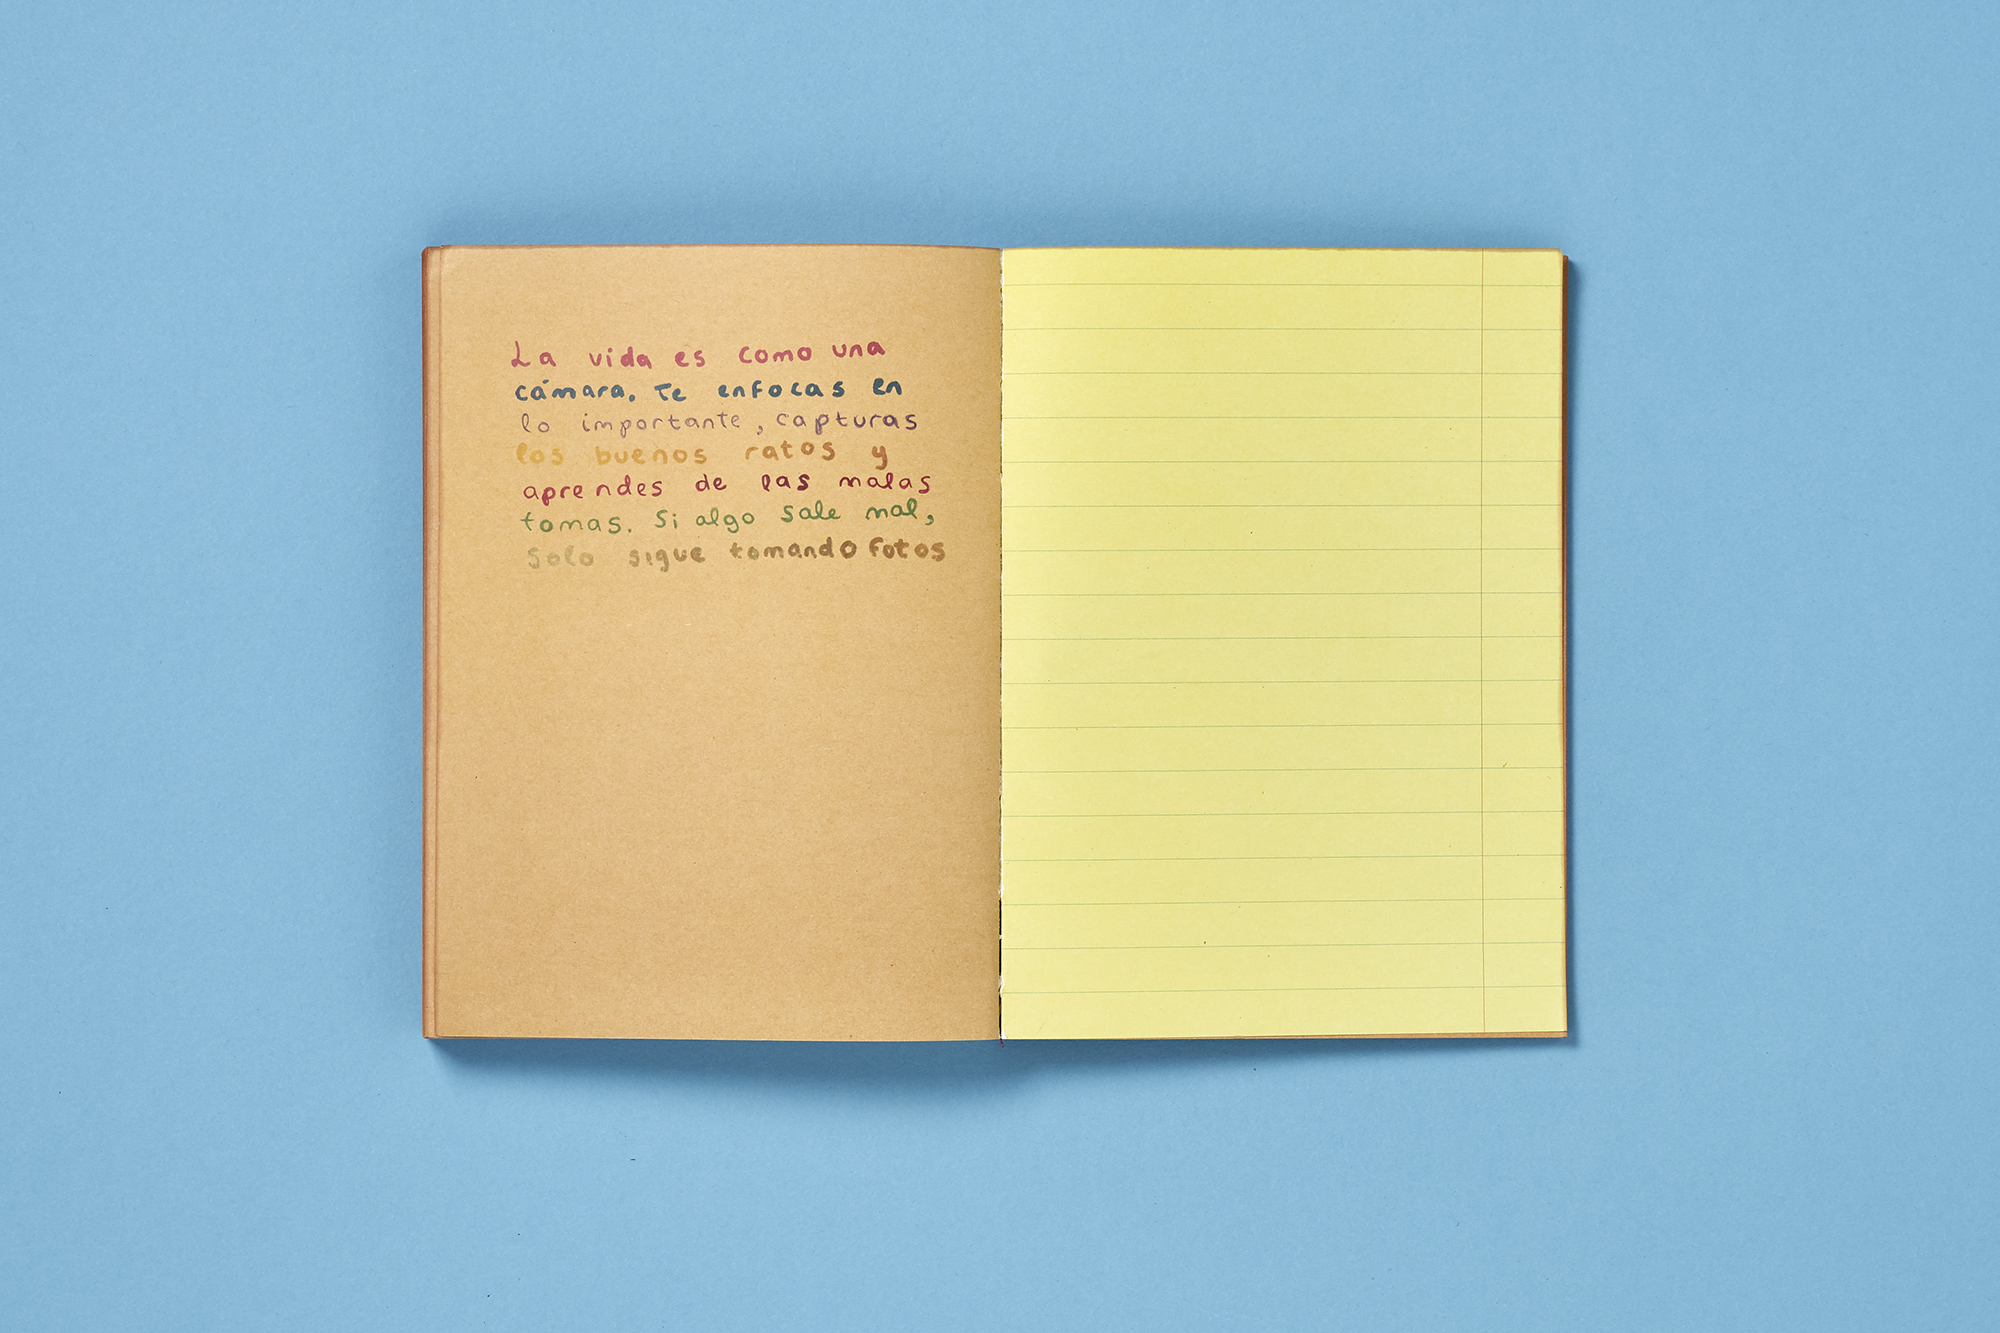 La vida es como una
cámara. Te enfocas en
lo importante, capturas
los buenos ratos y
aprendes de las malas
tomas. Si algo sale mal,
solo sigue tomando fotos